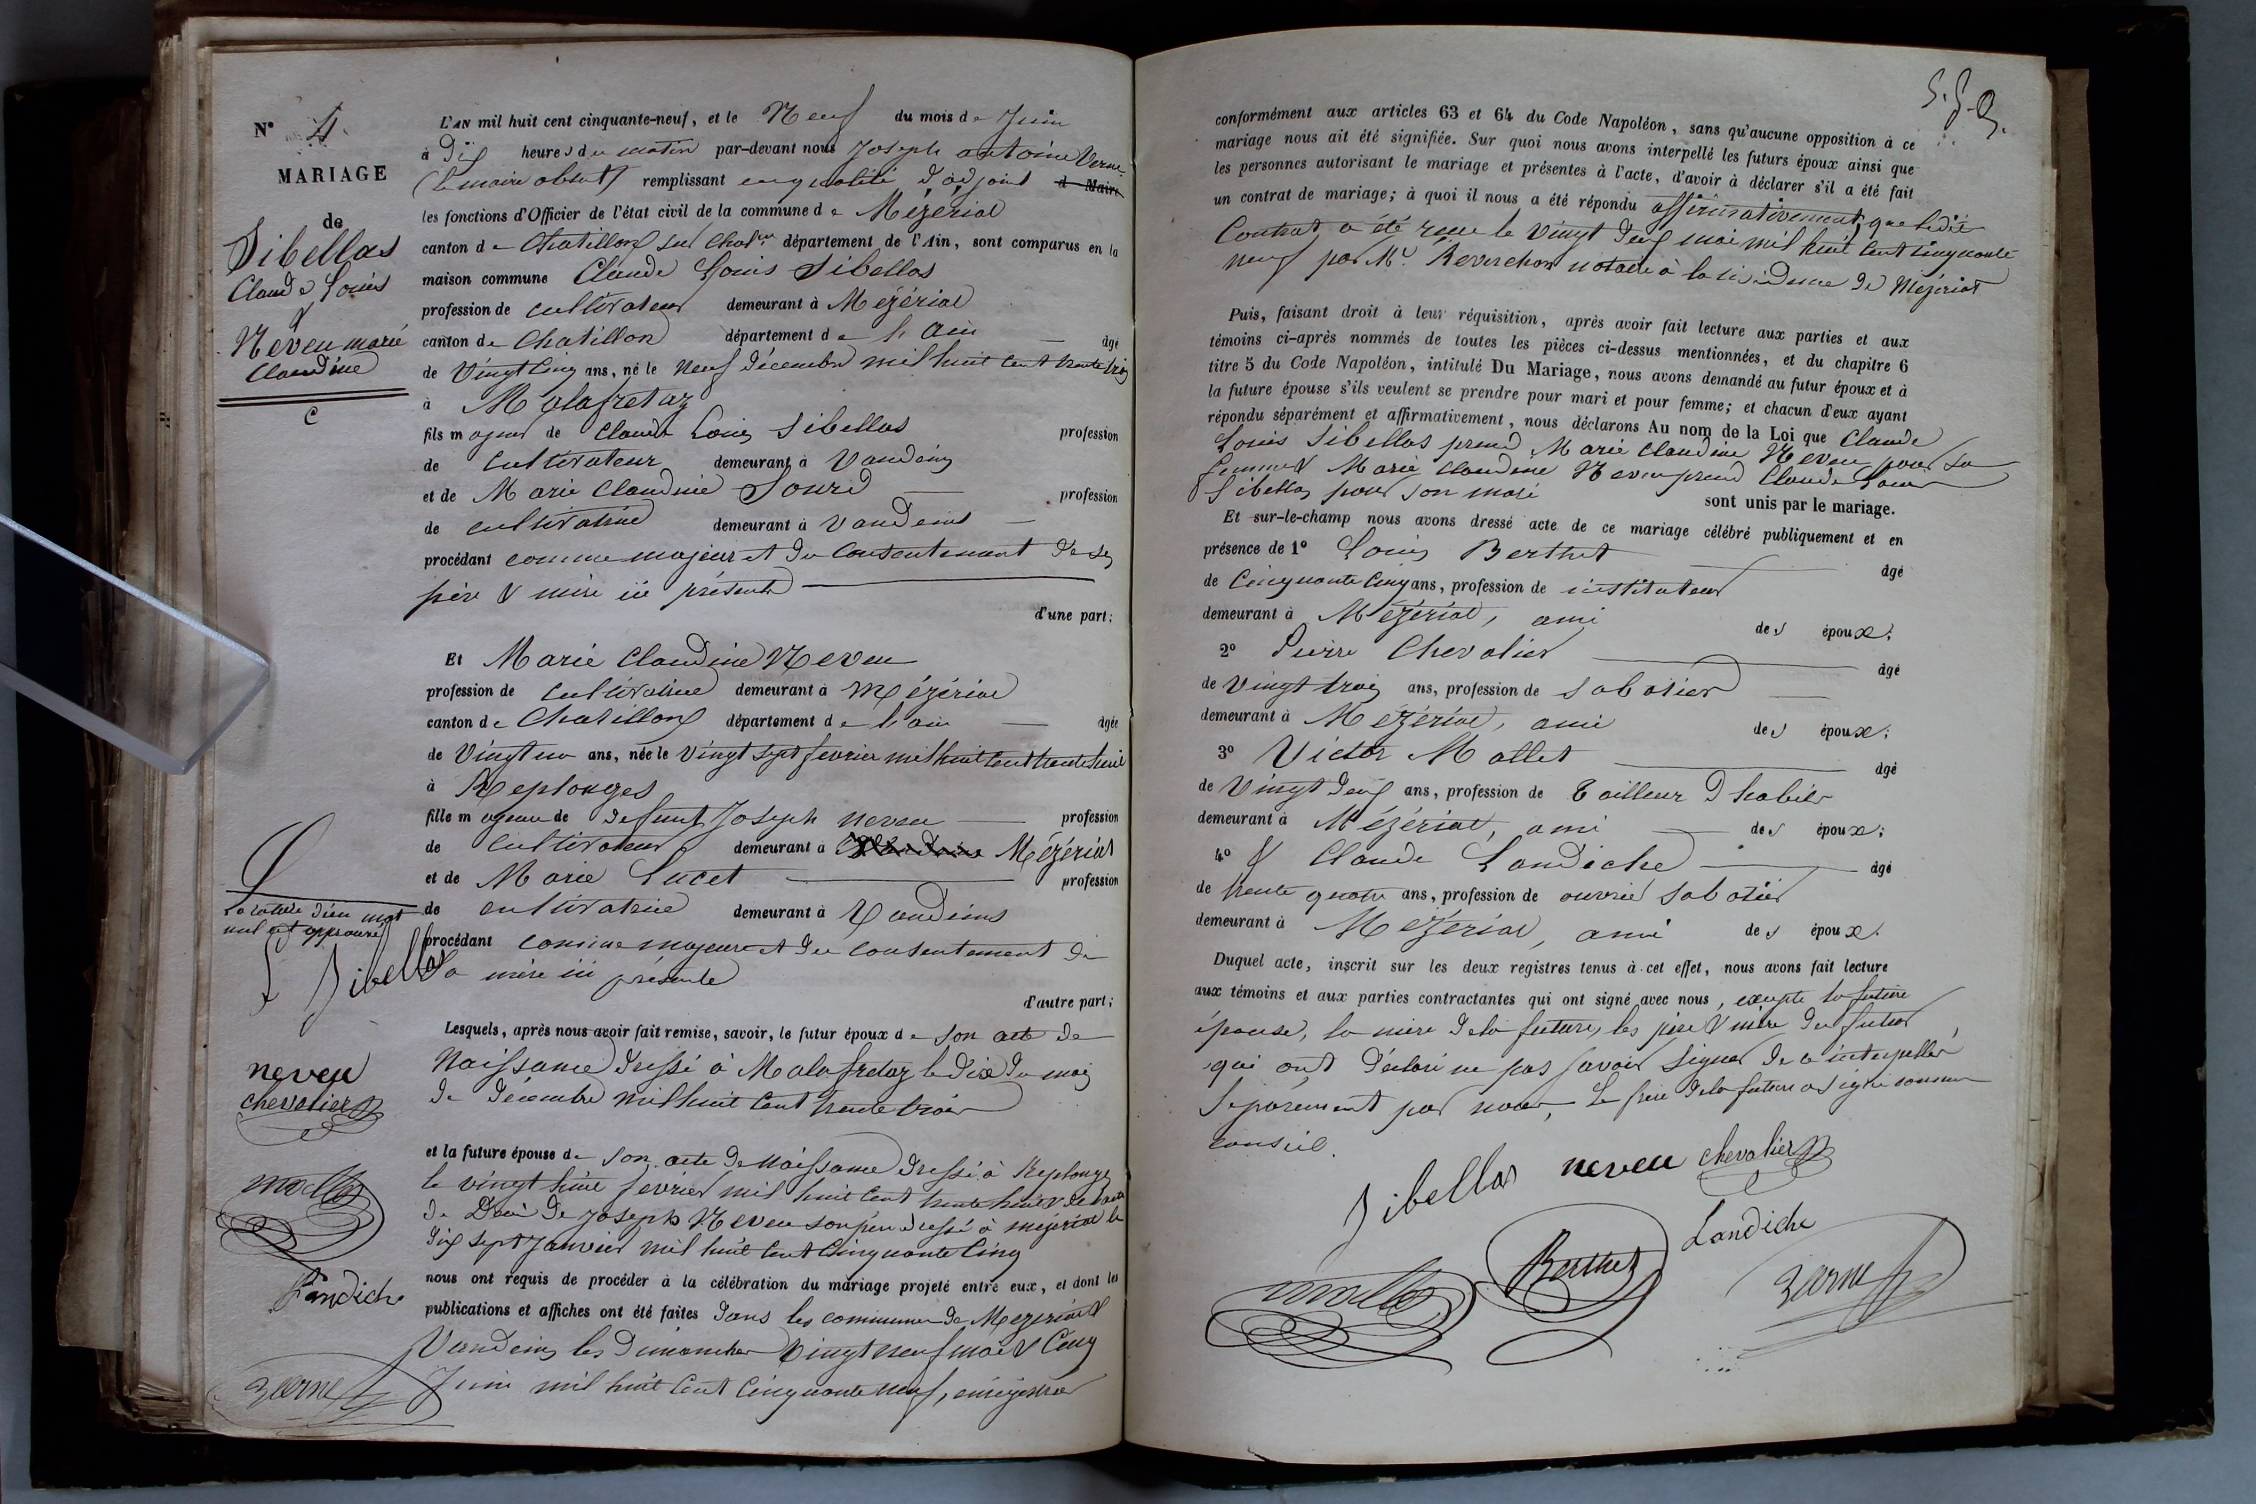 N° 4
MARIAGE
de
Sibellas
Claude Louis
&
Neveu marie
Claudine
C
L'AN mil huit cent cinquante-neuf, et le Neuf du mois de Juin
à Dix heures du matin par-devant nous Joseph antoine Verne
(le maire absent) remplissant en qualité d'adjoint d Maire
les fonctions d'Officier de l'état civil de la commune de Mézériat
canton de Chatillon sur Chalne département de l'Ain, sont comparus en la
maison commune Claude Louis Sibellas
profession de cultivateur demeurant à Mézériat
canton de Chatillon département de l'Ain âgé
de Vingt Cinq ans, né le Neuf Décembre mil huit cent trente trois
à Malafretaz
fils majeur de Claude Louis Sibellas profession
de Cultivateur demeurant à Vandeins
et de Marie Claudine Sourd profession
de cultivatrice demeurant à Vandeins
procédant comme majeur et du consentement de ses
père & mère ici présents
d'une part;
Et Marie Claudine Neveu
profession de cultivatrice demeurant à Mézériat
canton de Chatillon département de l'ain âgée
de Vingt un ans, née le Vingt sept fevrier mil huit cent trente huit
à Replonges
fille majeure de defunt Joseph neveu profession
de Cultivateur demeurant à Mézériat
et de Marie Lucet profession
de cultivatrice demeurant à Vandeins
procédant comme majeure et du consentement de
sa mère ici présente
d'autre part;
La rature d'un mot
nul est approuvé
Sibellas
neveu
chevalier
mollet
Landiche
Verne
Lesquels, après nous avoir fait remise, savoir, le futur époux de son acte de
Naissance dressé à Malafretaz le dix du mois
de Décembre mil huit cent trente trois
et la future épouse de son acte de Naissance dressé à Replonges
le vingt huit fevrier mil huit cent trente huit & de l'acte
de Décè de Joseph Neveu son père dressé à mézériat le
dix sept Janvier mil huit cent Cinquante Cinq
nous ont requis de procéder à la célébration du mariage projeté entre eux, et dont les
publications et affiches ont été faites dans les communes de Mezeriat &
Vandeins les Dimanches Vingt neuf mai & Cinq
Juin mil huit Cent Cinquante neuf, enregistrées
conformément aux articles 63 et 64 du Code Napoléon, sans qu'aucune opposition à ce
mariage nous ait été signifiée. Sur quoi nous avons interpellé les futurs époux ainsi que
les personnes autorisant le mariage et présentes à l'acte, d'avoir à déclarer s'il a été fait
un contrat de mariage; à quoi il nous a été répondu affirmativement, que ledit
Contrat a été recu le Vingt Deux mai mil huit Cent cinquante
neuf par Me Reverchon notaire à la residence de Mézériat
Puis, faisant droit à leur réquisition, après avoir fait lecture aux parties et aux
témoins ci-après nommés de toutes les pièces ci-dessus mentionnées, et du chapitre 6
titre 5 du Code Napoléon, intitulé Du Mariage, nous avons demandé au futur époux et à
la future épouse s'ils veulent se prendre pour mari et pour femme; et chacun d'eux ayant
répondu séparément et affirmativement, nous déclarons Au nom de la Loi que Claude
Louis Sibellas prend Marie Claudine Neveu pour sa
femme & Marie Claudine Neveu prend Claude Louis
Sibellas pour son mari
sont unis par le mariage.
Et sur-le-champ nous avons dressé acte de ce mariage célébré publiquement et en
présence de 1° Louis Berthet âgé
de Cinquante Cinq ans, profession de instituteur
demeurant à Mézériat, ami des époux;
2° Pierre Chevalier âgé
de Vingt trois ans, profession de sabotier
demeurant à Mézériat, ami des époux;
3° Victor Mollet âgé
de Vingt Deux ans, profession de Tailleur D'habits
demeurant à Mézériat, ami des époux;
4° & Claude Landiche âgé
de trente quatre ans, profession de ouvrier sabotier
demeurant à Mézériat, ami des époux.
Duquel acte, inscrit sur les deux registres tenus à cet effet, nous avons fait lecture
aux témoins et aux parties contractantes qui ont signé avec nous, excepté la future
épouse, la mère de la future, les père & mère du futur
qui ont déclaré ne pas savoir signer de ce interpellés
séparément par nous, le frère de la future a signé comme
conseil.
Sibellas neveu chevalier
mollet Berthet Landiche
Verne